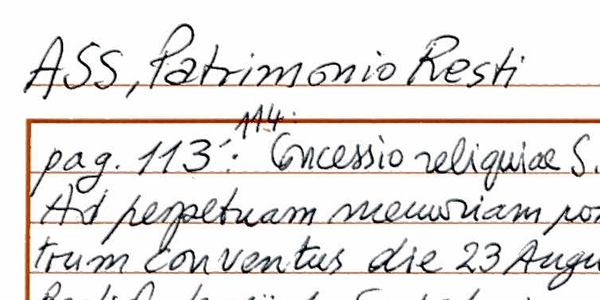 ASS, Patrimonio Resti
114:
pag. 113: Concessio reliquiae S.
Ad perpetuam memoriam
trum conventus die 23 Augu